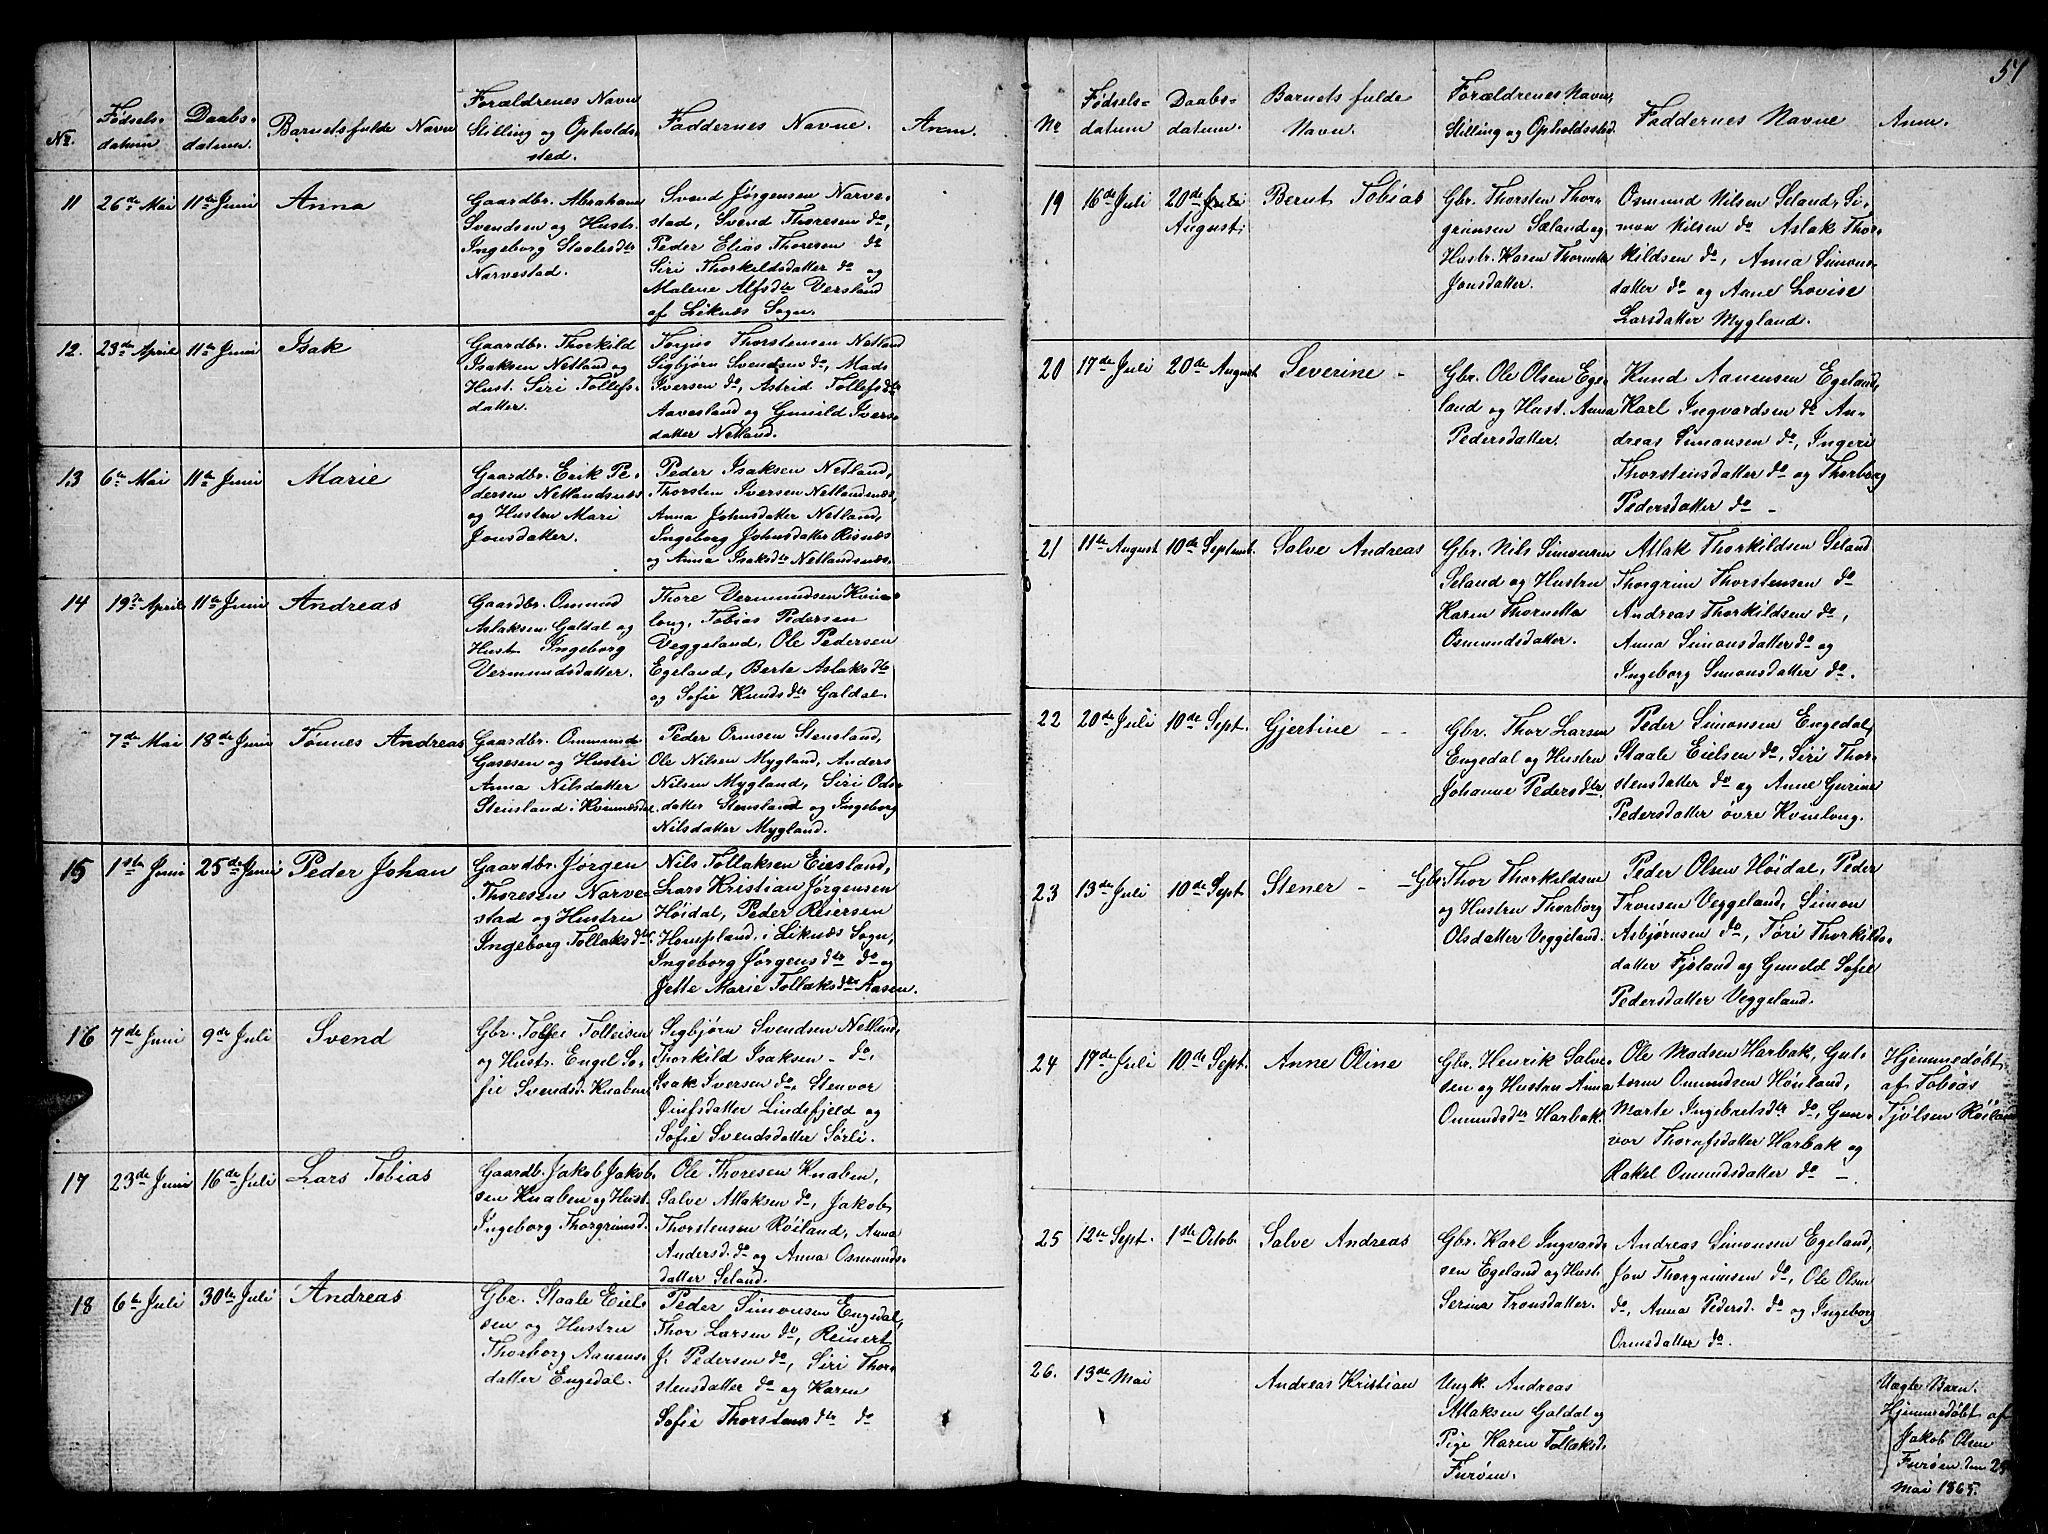 57
No.
Fødsels-
datum
Daabs-
datum
Barnets fulde Navn
Forældrenes Navn
Stilling og Opholds-
sted.
Faddernes Navne.
Anm.
11
26de Mai
11te Juni
Anna
Gaardbr. Abraham
Svendsen og Hustr.
Ingeborg Staalesdtr
Narvestad.
Svend Jørgensen Narve-
stad, Svend Thoresen do,
Peder Elias Thoresen do
Siri Thorkildsdatter do og
Malene Alfsdtr Versland
af Liknes Sogn.
12.
23de April
11te Juni
Isak
Gaardbr. Thorkild
Isaksen Netland og
Hust. Siri Tollefs-
datter.
Torjus Thorstensen Netland
Sigbjørn Svendsen do, Mads
Iversen do, Astrid Tollefsdtr
Aavesland og Gunild Ivers-
datter Netland.
13
6te Mai
11te Juni
Marie
Gaardbr. Erik Pe-
dersen Netlandsnes
og Hustru Mari
Jonsdatter.
Peder Isaksen Netland,
Thorsten Iversen Netlandsnæs,
Anna Johnsdatter Netland,
Ingeborg Johnsdatter Risnæs
og Anna Isaksdtr Netlandsnæs.
14
19de April
11te Juni
Andreas
Gaardbr. Omund
Aslaksen Galdal og
Hust. Ingeborg
Vermundsdatter.
Thore Vermundsen Kvin-
long, Tobias Pedersen
Veggeland, Ole Pedersen
Egeland, Berte Aslaksdtr
og Sofie Knudsdtr Galdal.
7de Mai
18de Juni
Tønnes Andreas
Gaardbr. Ommund
Gasesen og Hustri
Anna Nilsdatter
Stensland i Kvinesdal
Peder Ormsen Stensland,
Ole Nilsen Mygland, Anders
Nilsen Mygland, Siri Ods-
datter Stensland og Ingeborg
Nilsdatter Mygland.
15
1ste Juni
25de Juni
Peder Johan
Gaardbr. Jørgen
Thoresen Narve-
stad og Hustru
Ingeborg Tollaksdtr.
Nils Tollaksen Eiesland,
Lars Kristian Jørgensen
Høidal, Peder Reiersen
Hompland, i Liknæs Sogn,
Ingeborg Jørgensdtr do og
Jette Marie Tollaksdtr Aasen.
16
7de Juni
9de Juli
Svend
Gbr. Tollef Tolleisen
og Hustr. Engel So-
fie Svendsd. Knaben
Sigbjørn Svendsen Netland,
Thorkild Isaksen - do,
Isak Iversen do, Stenvor
Øinfsdatter Lindefjeld og
Sofie Svendsdatter Sørli.
17
23de Juni
16de Juli
Lars Tobias
Gaardb. Jakob Jakob-
sen Knaben og Hust.
Ingeborg Thorgrimsd.
Ole Thoresen Knaben,
Salve Atlaksen do, Jakob
Thorstensen Røiland, Anna
Andersd. do og Anna Osmunds-
datter Seland.
18
6te Juli
30te Juli
Andreas
Gbr. Staale Eiel-
sen og Hustru
Thorborg Aanens-
datter Engedal.
Peder Simonsen Engedal,
Thor Larsen do, Reinert
J. Pedersen do, Siri Thor-
stensdatter do og Karen
Sofie Thorstensdtr do
No
Fødsels-
datum
Daabs-
datum.
Barnets fulde
Navn.
Forældrenes Navn,
Stilling og Opholdssted.
Faddernes Navne
Anm.
19
16de Juli
20de Juli
August.
Bernt Tobias
Gbr. Thorsten Thor-
grimsen Sæland og
Hustr. Karen Thornetta
Jonsdatter.
Osmund Nilsen Seland, Si-
mon Nilsen do Aslak Thor-
kildsen do, Anna Simons-
datter do og Anne Lovise
Larsdatter Mygland.
20
17de Juli
20de August
Severine -
Gbr. Ole Olsen Ege-
land og Hust. Anna
Pedersdatter.
Knud Aanensen Egeland,
Karl Ingvardsen do An-
dreas Simonsen do, Ingeri
Thorstensdatter do og Thorborg
Pedersdatter do -
21
11te August
10de Septemb.
Salve Andreas
Gbr. Nils Simonsen
Seland og Hustru
Karen Thornetta
Osmundsdatter.
Atlak Thorkildsen Seland
Thorgrim Thorstensen do
Andreas Thorkildsen do,
Anna Simonsdatter do og
Ingeborg Simonsdatter do.
22
20de Juli
10de Sept.
Gjertine - -
Gbr. Thor Larsen
Engedal og Hustru
Johanne Pedersdtr.
Peder Simonsen Engedal,
Staale Eielsen do, Siri Thor-
stensdatter do og Anne Gurine
Pedersdatter øvre Kvinlong.
23
13de Juli
10de Sept.
Stener - -
Gbr. Thor Thorkildsen
og Hustru Thorborg
Olsdatter Veggeland.
Peder Olsen Høidal, Peder
Tronsen Veggeland, Simon
Asbjørnsen do, Tøri Thorkilds-
datter Fjeland og Gunild Sofie
Pedersdatter Veggeland.
24
17de Juli
10de Sept.
Anne Oline
Gbr. Henrik Salve-
sen og Hustru Anna
Omundsdtr Harbak.
Ole Madsen Harbak, Gut-
torm Omundsen Hønland,
Marte Ingebretsdtr do, Gun-
vor Thorufsdatter Harbak og
Rakel Omundsdatter do -
Hjemmedøbt
af Tobias
Tjølsen Røiland
25
12te Sept.
1ste Octob.
Salve Andreas
Gbr. Karl Ingvard-
sen Egeland og Hust.
Serina Tronsdatter.
Andreas Simonsen Egeland,
Jon Thorgrimsen do, Ole Olsen
do, Anna Pedersd. do og Ingeborg
Ormsdatter do.
26.
13de Mai
Andreas Kristian
Ungk. Andreas
Atlaksen Galdal og
Pige Karen Tollaksd.
Furøen.
Uægte Barn.
Hjemmedøbt af
Jakob Olsen
Furøen den 29
Mai 1865.